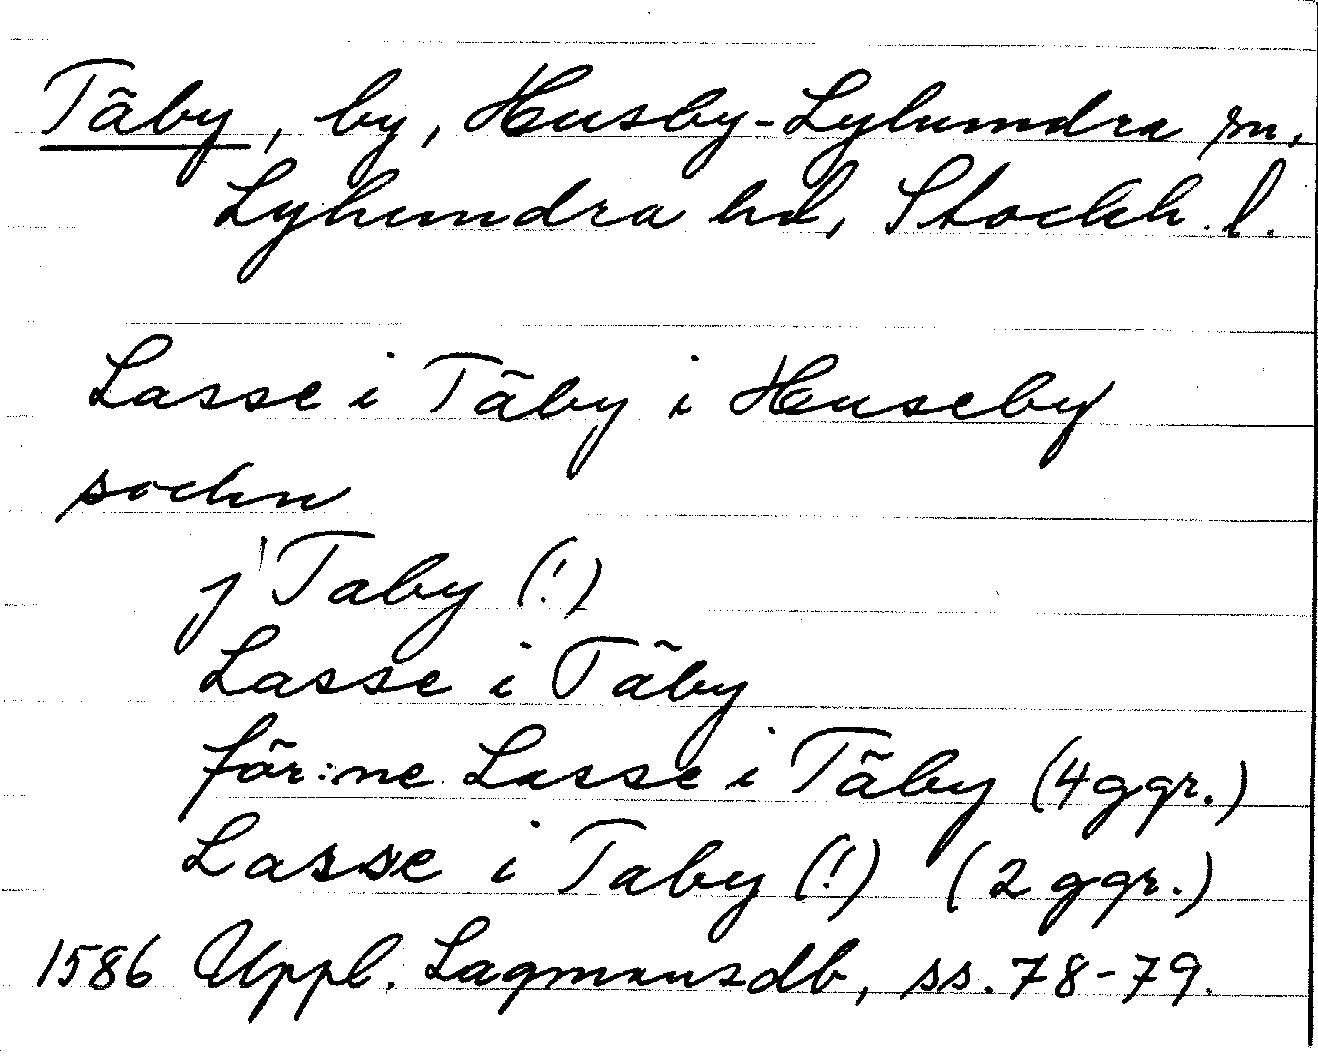 Täby, by, Husby-Lyhundra sn,
Lyhundra hd, Stockh. l.
Lasse i Täby i Huseby
sochn
j Taby (!)
Lasse i Täby
för:ne Lasse i Täby (4 ggr.)
Lasse i Taby (!) (2 ggr.)
1586 Uppl. Lagmansdb, ss. 78-79.